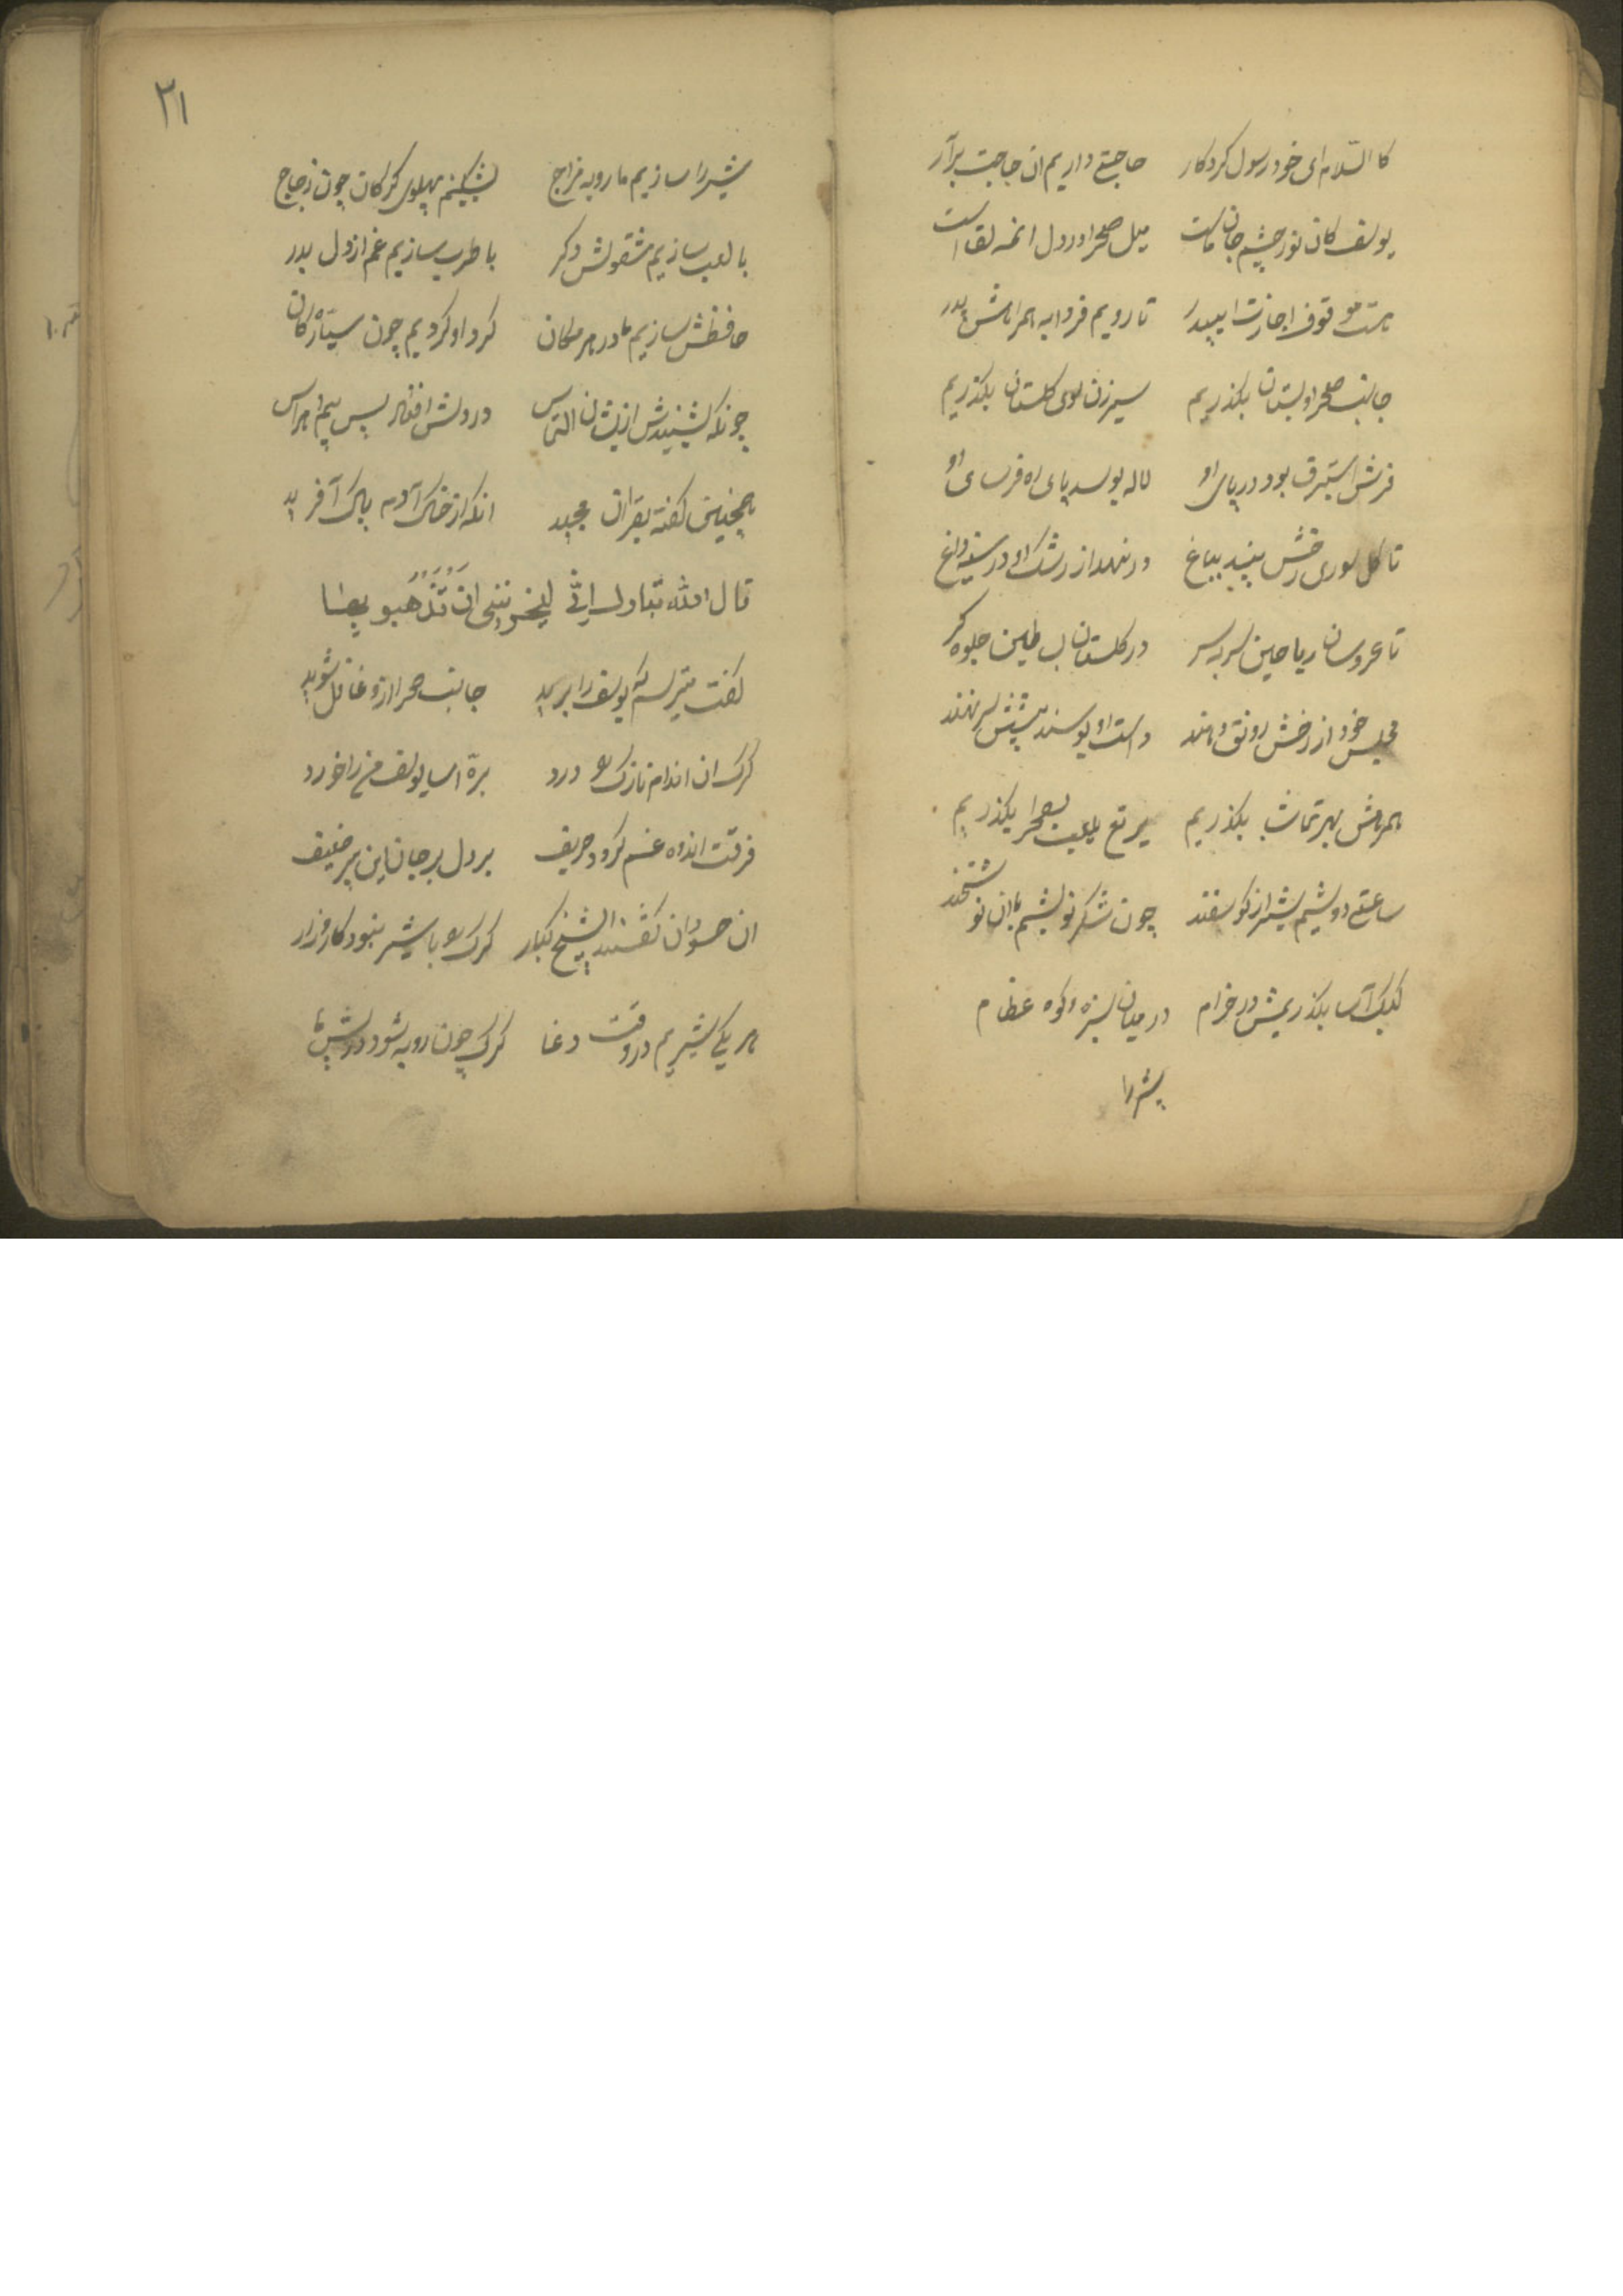 کا السلام ای خود رسول کردکار حاجتی داریم ان حاجت برآر
یوسف کان نور چشم جان ماست میل صحرا در دل انمه لقاست
هست موقوف اجازت ای پدر تا رویم فردا به همراهش بدر
جانب صحرا و بستان بکذریم سیرزن سوی کلستان بکذریم
فرش استبرق بود در پای او لاله بوسد پای ره فرسای او
تا کل سوری رخش بیند بباغ ورنهد از رشک او در سینه داغ
تا عروسان ریاحین سر بسر در کلستان بساطین جلوه کر
مجلس خود از رخش رونق دهند دست او بوسند پیشش سر نهند
همرهش بهر تماشا بکذریم یرتع یلعب بصحرا بکذریم
ساعتی دوشیم شیر از کوسفند چون شکر نوشیم با ان نوشخند
کبک آسا بکذریمش در خرام در میان سبزه و کوه عظام
شیر را
۲۱
شیر را سازیم ما روبه مزاج بشکنیم پهلوی کرکان چون زجاج
با لعب سازیم مشغولش دکر با طرب سازیم غم از دل بدر
حافظش سازیم ما در هر مکان کرد او کردیم چون سیّارکان
چونکه بشنیدش ازیشان التماس در دلش افتاد پس بیم و هراس
همچنین کفته بقران مجید انکه از خاک آدم پاک آفرید
قال الله تبارک اِنّی لیحزننی ان تَذهبو به
کفت میترسم که یوسف را برید جانب صحرا ازو غافل شوید
کرک ان اندام نازک را درد برّه آسا یوسف من را خورد
فرقت اندوه غم کردد حریف بر دل بر جان این پیر ضعیف
ان حسودان کفتند ای شیخ کبار کرک را با شیر نبود کارزار
هر یکی شیریم در وقت دغا کرک چون روبه شود در پیش ما